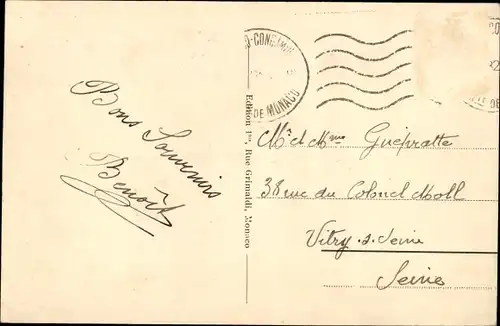 Bons Souvenirs
Benoît
Edition 1re, Rue Grimaldi, Monaco
DE MONACO
Mr d Mme Guépratte
38 rue du Colonel Moll
Vitry s. Seine
Seine